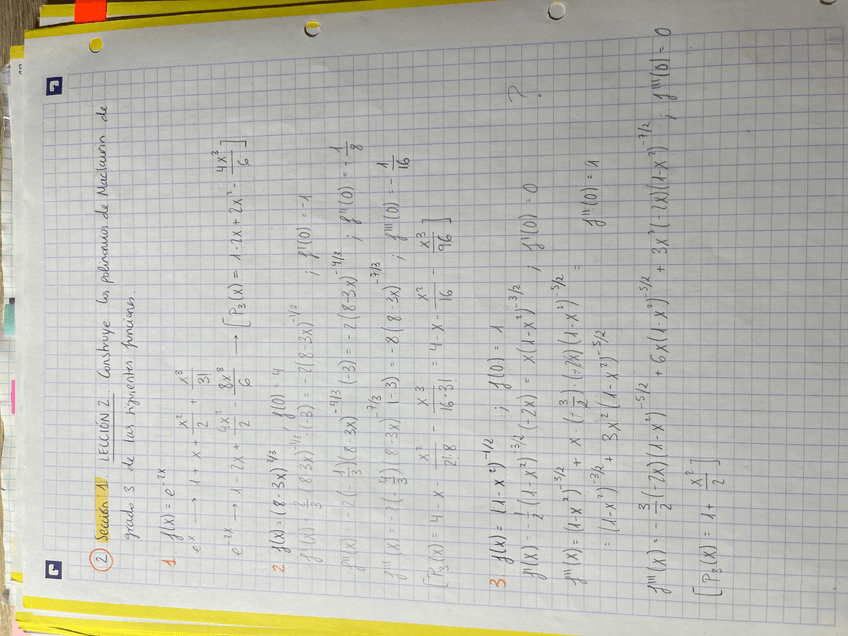 ② Sección 1 LECCIÓN 2. Construye los polinomios de Maclaurin de
grado 3 de las siguientes funciones.
1. f(x) = e^-2x
e^x → 1 + x + x²/2 + x³/3!
e^-2x → 1 - 2x + 4x²/2 - 8x³/6 → [P₃(x) = 1 - 2x + 2x² - 4x³/6]
2 f(x) = (8-3x)^2/3 ; f(0) = 4
f'(x) = 2/3 (8-3x)^-1/3 · (-3) = -2(8-3x)^-1/3 ; f'(0) = -1
f''(x) = -2(-1/3)(8-3x)^-4/3 (-3) = -2(8-3x)^-4/3 ; f''(0) = -1/8
f'''(x) = -2(-4/3)(8-3x)^-7/3 (-3) = -8(8-3x)^-7/3 ; f'''(0) = -1/16
[P₃(x) = 4 - x - x²/2!·8 - x³/16·3! = 4 - x - x²/16 - x³/96]
3. f(x) = (1-x²)^-1/2 ; f(0) = 1 ?
f'(x) = -1/2 (1-x²)^-3/2 (-2x) = x(1-x²)^-3/2 ; f'(0) = 0
f''(x) = (1-x²)^-3/2 + x · (-3/2) · (-2x)(1-x²)^-5/2 =
= (1-x²)^-3/2 + 3x²(1-x²)^-5/2 f''(0) = 1
f'''(x) = -3/2 (-2x)(1-x²)^-5/2 + 6x(1-x²)^-5/2 + 3x²(-2x)(1-x²)^-7/2 ; f'''(0) = 0
[P₃(x) = 1 + x²/2]